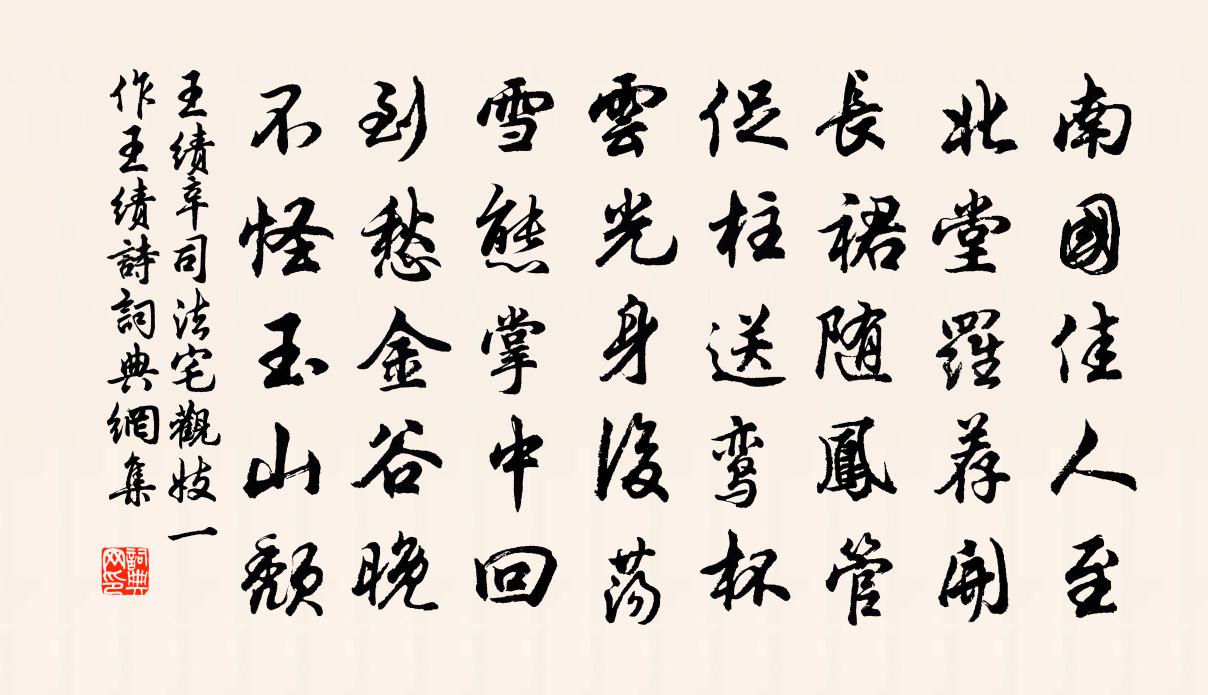 南國佳人至
北堂羅荐開
長裙随鳳管
促柱送鸾杯
雲光身後荡
雪態掌中回
到愁金谷晚
不怪玉山颓
王績辛司法宅觀妓一
作王績詩詞典網集
詞典网印